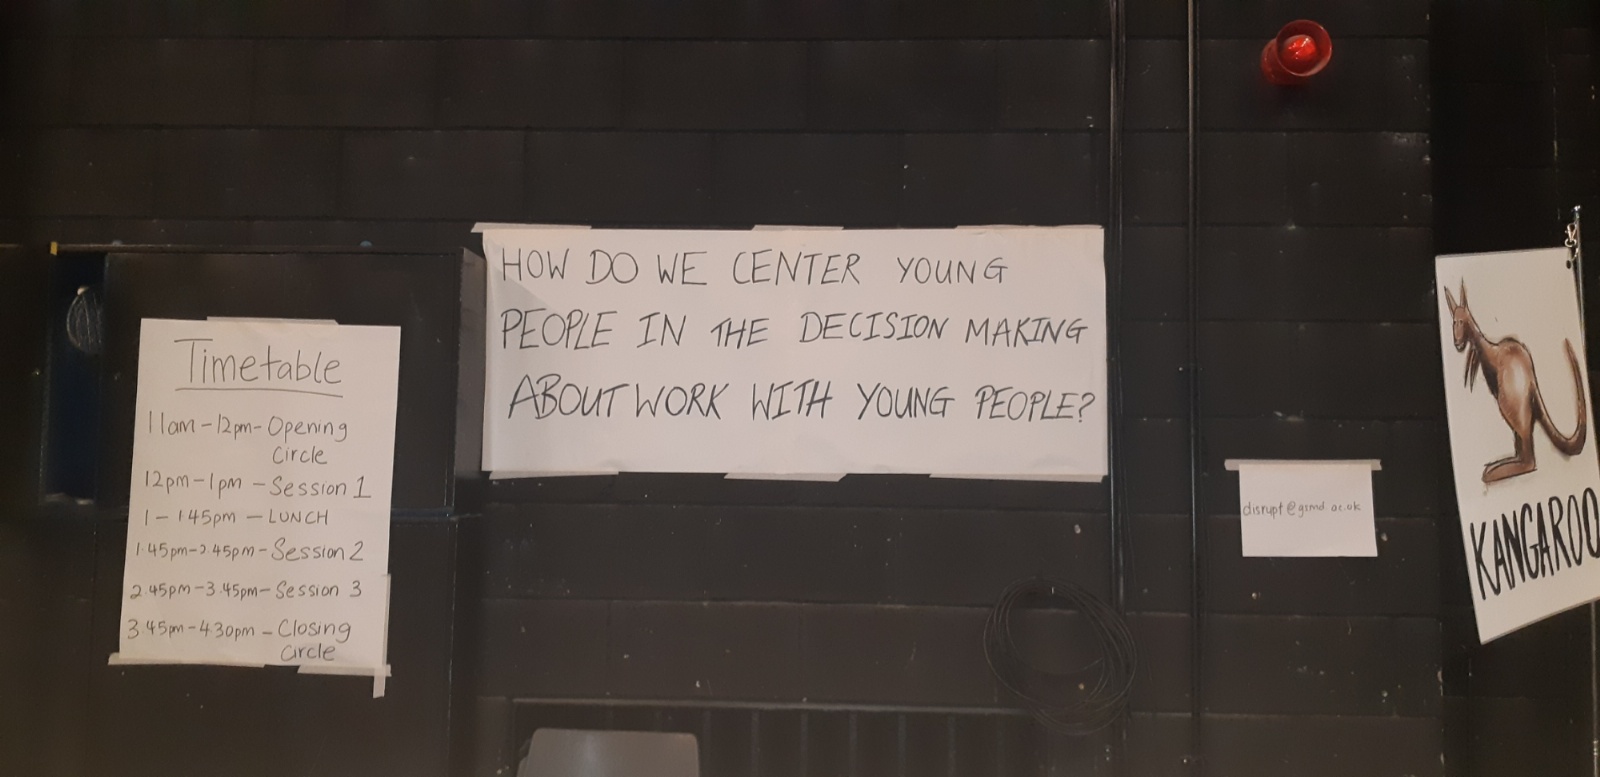 Timetable
11am-12pm- Opening
Circle
12pm-1pm - Session 1
1 - 1.45pm - LUNCH
1.45pm-2.45pm - Session 2
2.45pm-3.45pm- Session 3
3.45pm-4.30pm - Closing
Circle
HOW DO WE CENTER YOUNG
PEOPLE IN THE DECISION MAKING
ABOUT WORK WITH YOUNG PEOPLE?
disrupt@gsmd.ac.uk
KANGAROO